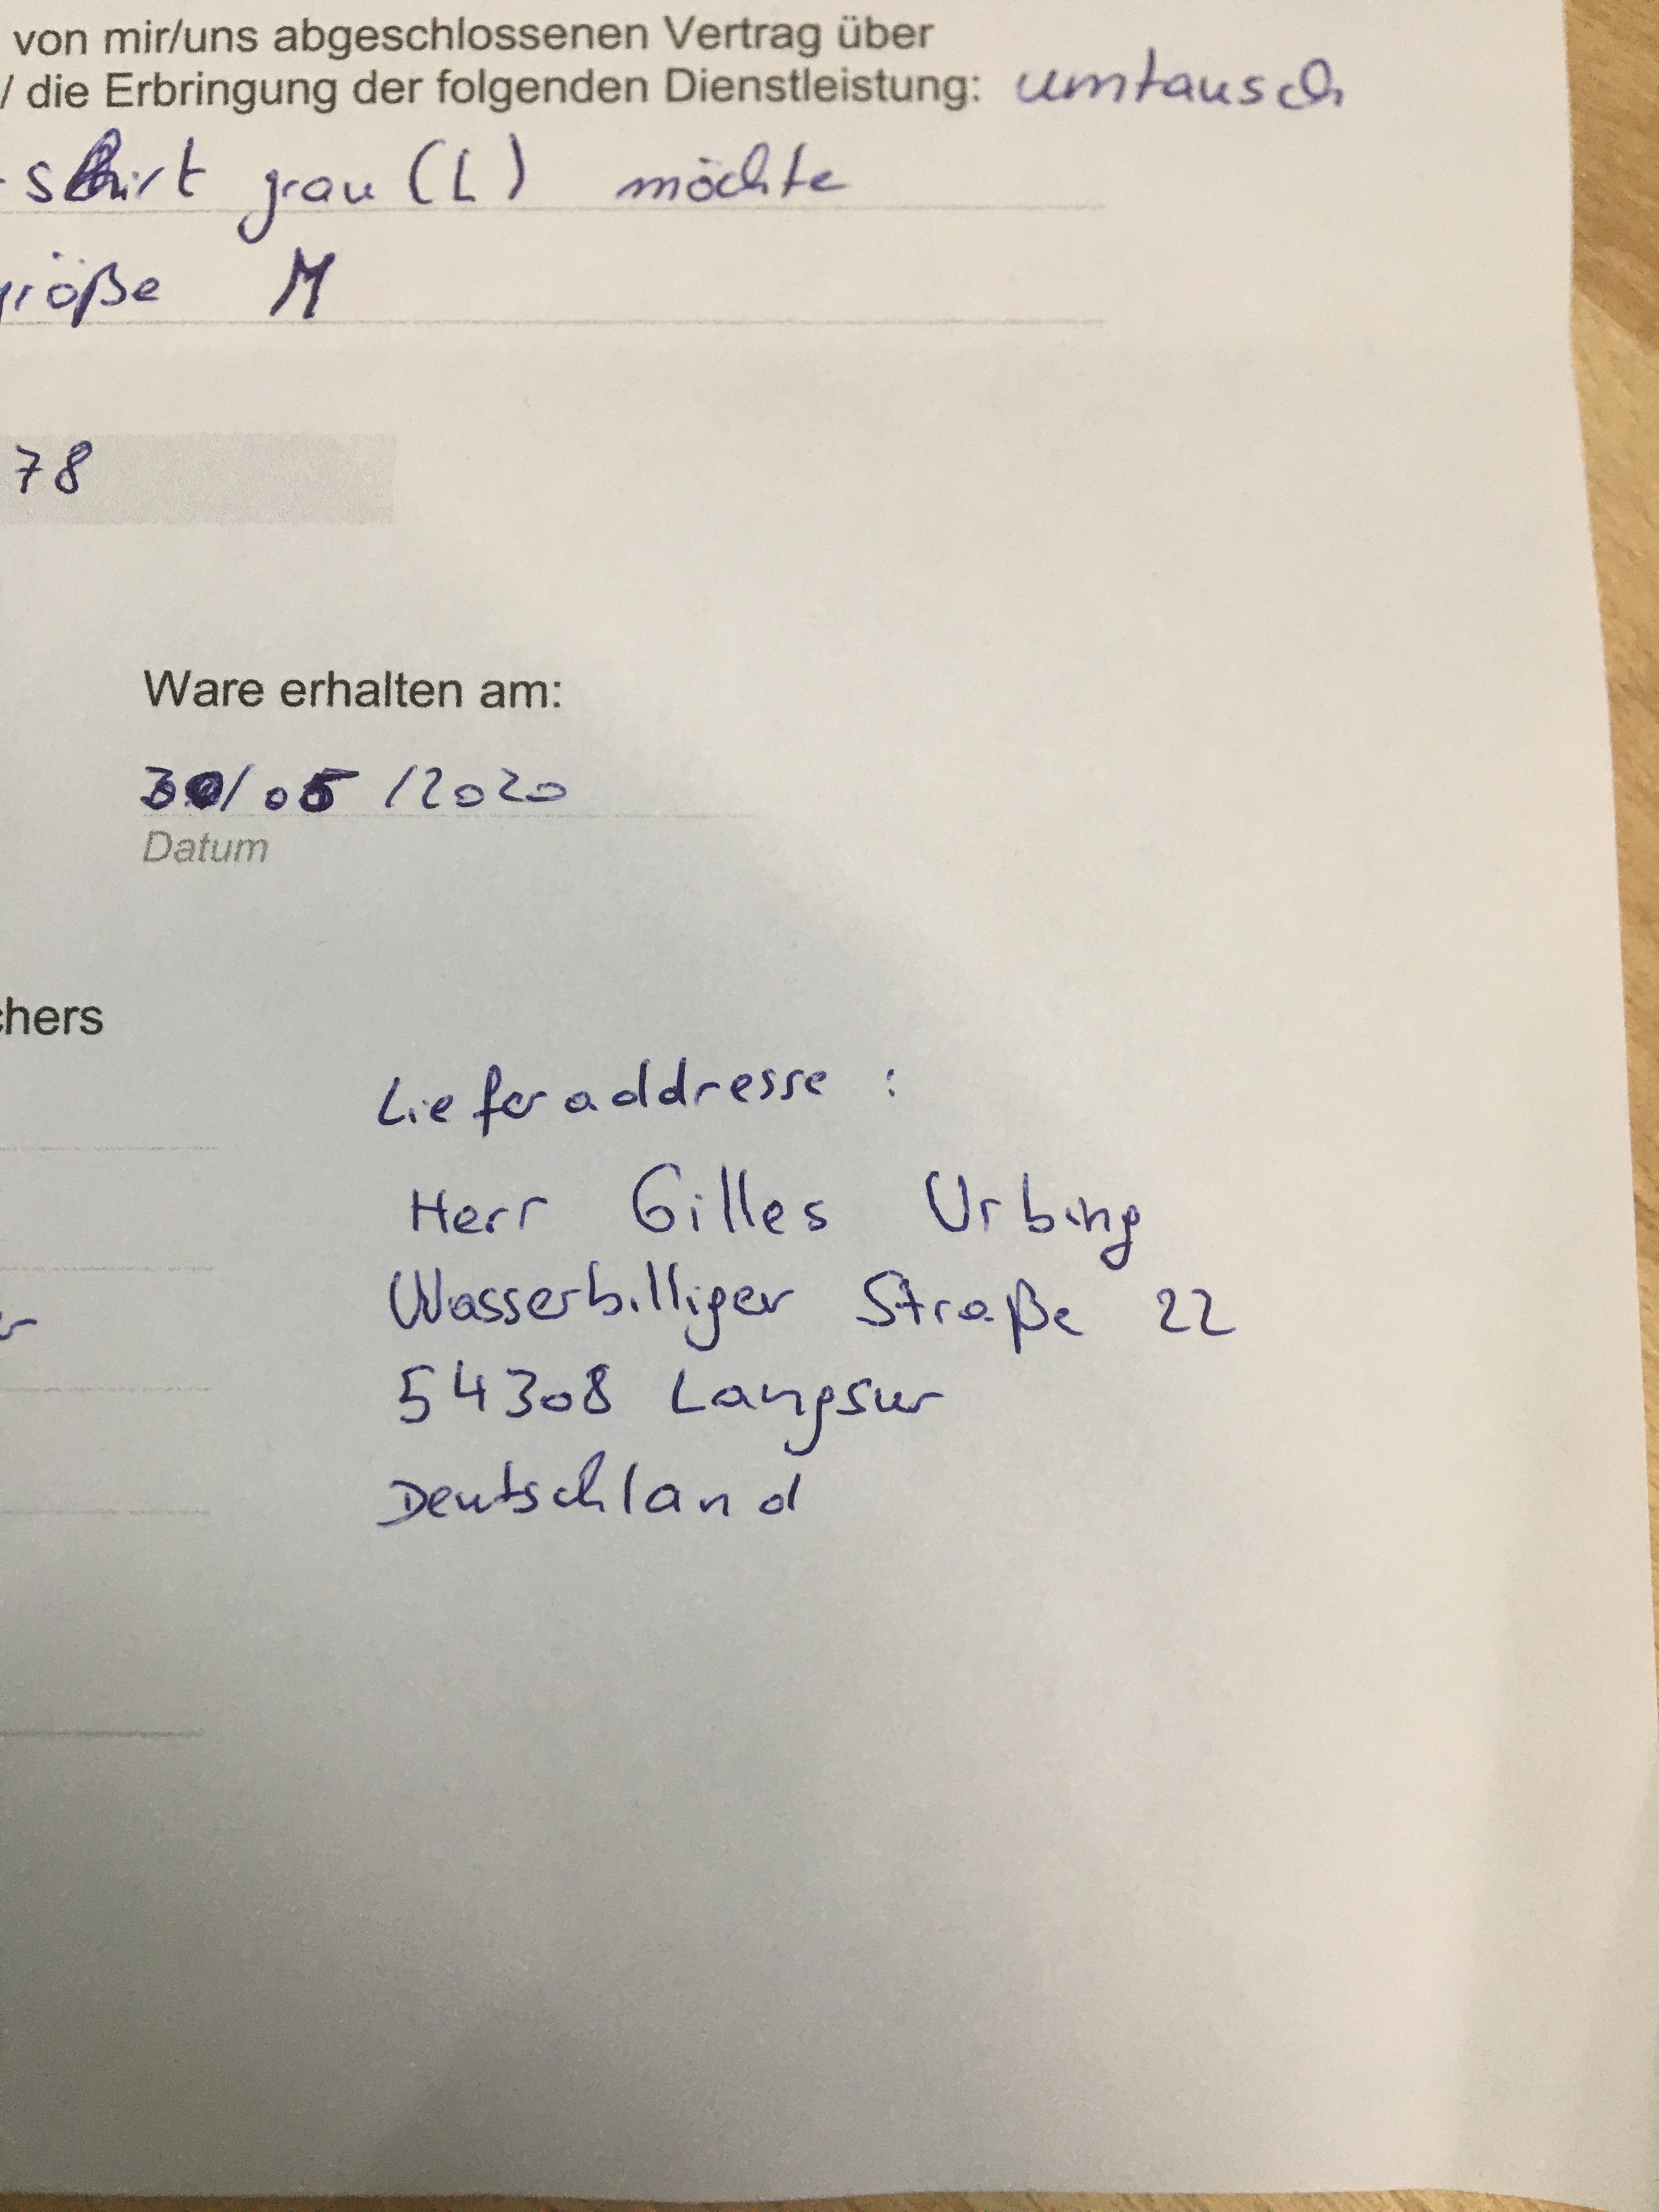 von mir/uns abgeschlossenen Vertrag über
/ die Erbringung der folgenden Dienstleistung: umtausch
-shirt grau (L) möchte
größe M
78
Ware erhalten am:
30/05/2020
Datum
chers
Lieferaddresse :
Herr Gilles Urbing
Wasserbilliger Straße 22
54308 Langsur
Deutschland